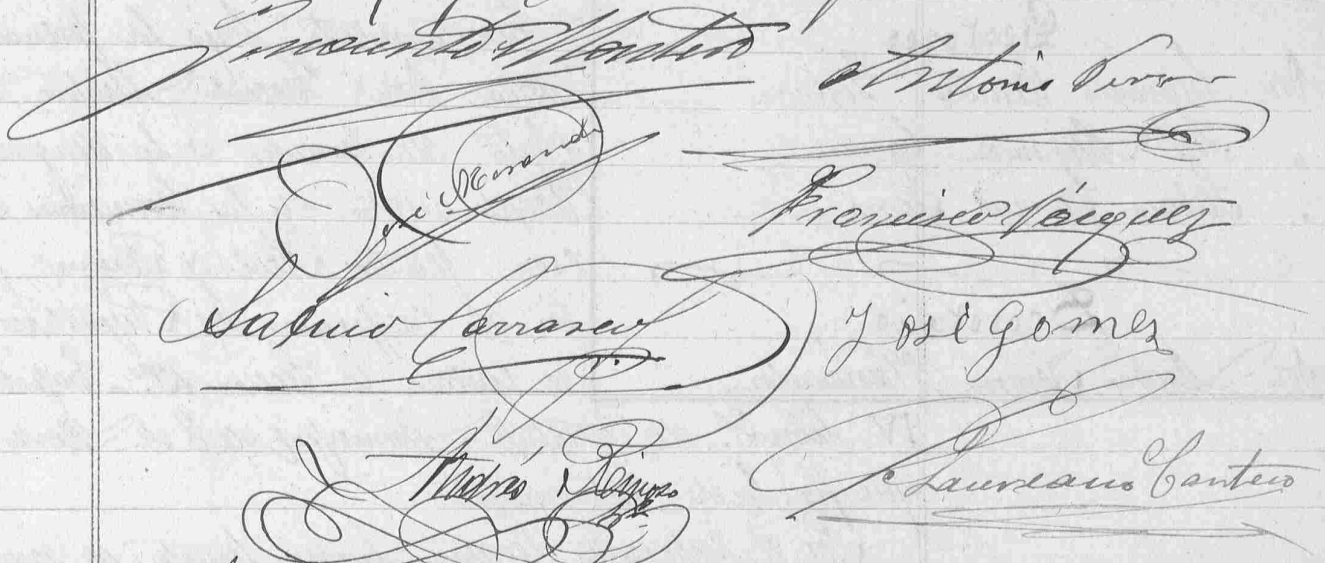 Inocente Montero
Antonio
José Morando
Francisco Vázquez
Sabino Carrasco
José Gomez
Andrés Reinoso
Laureano Cantero